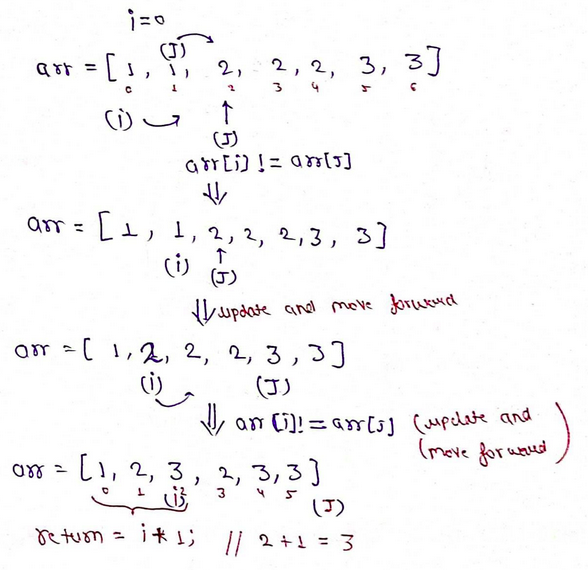 i=0
(J)
arr = [1, 1, 2, 2, 2, 3, 3]
0 1 2 3 4 5 6
(i)
(J)
arr[i] != arr[J]
arr = [1, 1, 2, 2, 2, 3, 3]
(i) (J)
update and move forward
arr = [1, 2, 2, 2, 3, 3]
(i) (J)
arr[i] != arr[j] (update and
(move forward)
arr = [1, 2, 3, 2, 3, 3]
0 1 2 3 4 5
(i) (J)
return = i+1; // 2+1 = 3